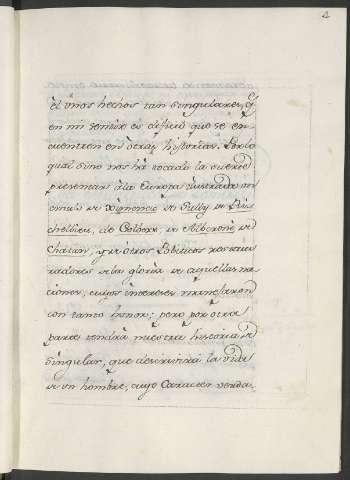 él únos hechos tan singulares, q̃
en mi sentir es dificil que se en-
cuentren en otras historias. Por lo
qual sino nos há tocado la suerte
presentar á la Europa ilustrada un
de de Sully de Ris-
chelieu, de Colbert, de Alberoni, de
Chatan, y de otros Politicos
radores de la gloria de aquellas na-
ciones, cuyos intereses manejaron
con tanto honor; pero por otra
parte tendrá nuestra historia de
singular, que descrivirá la vida
de un hombre, cuyo Caracter verda-